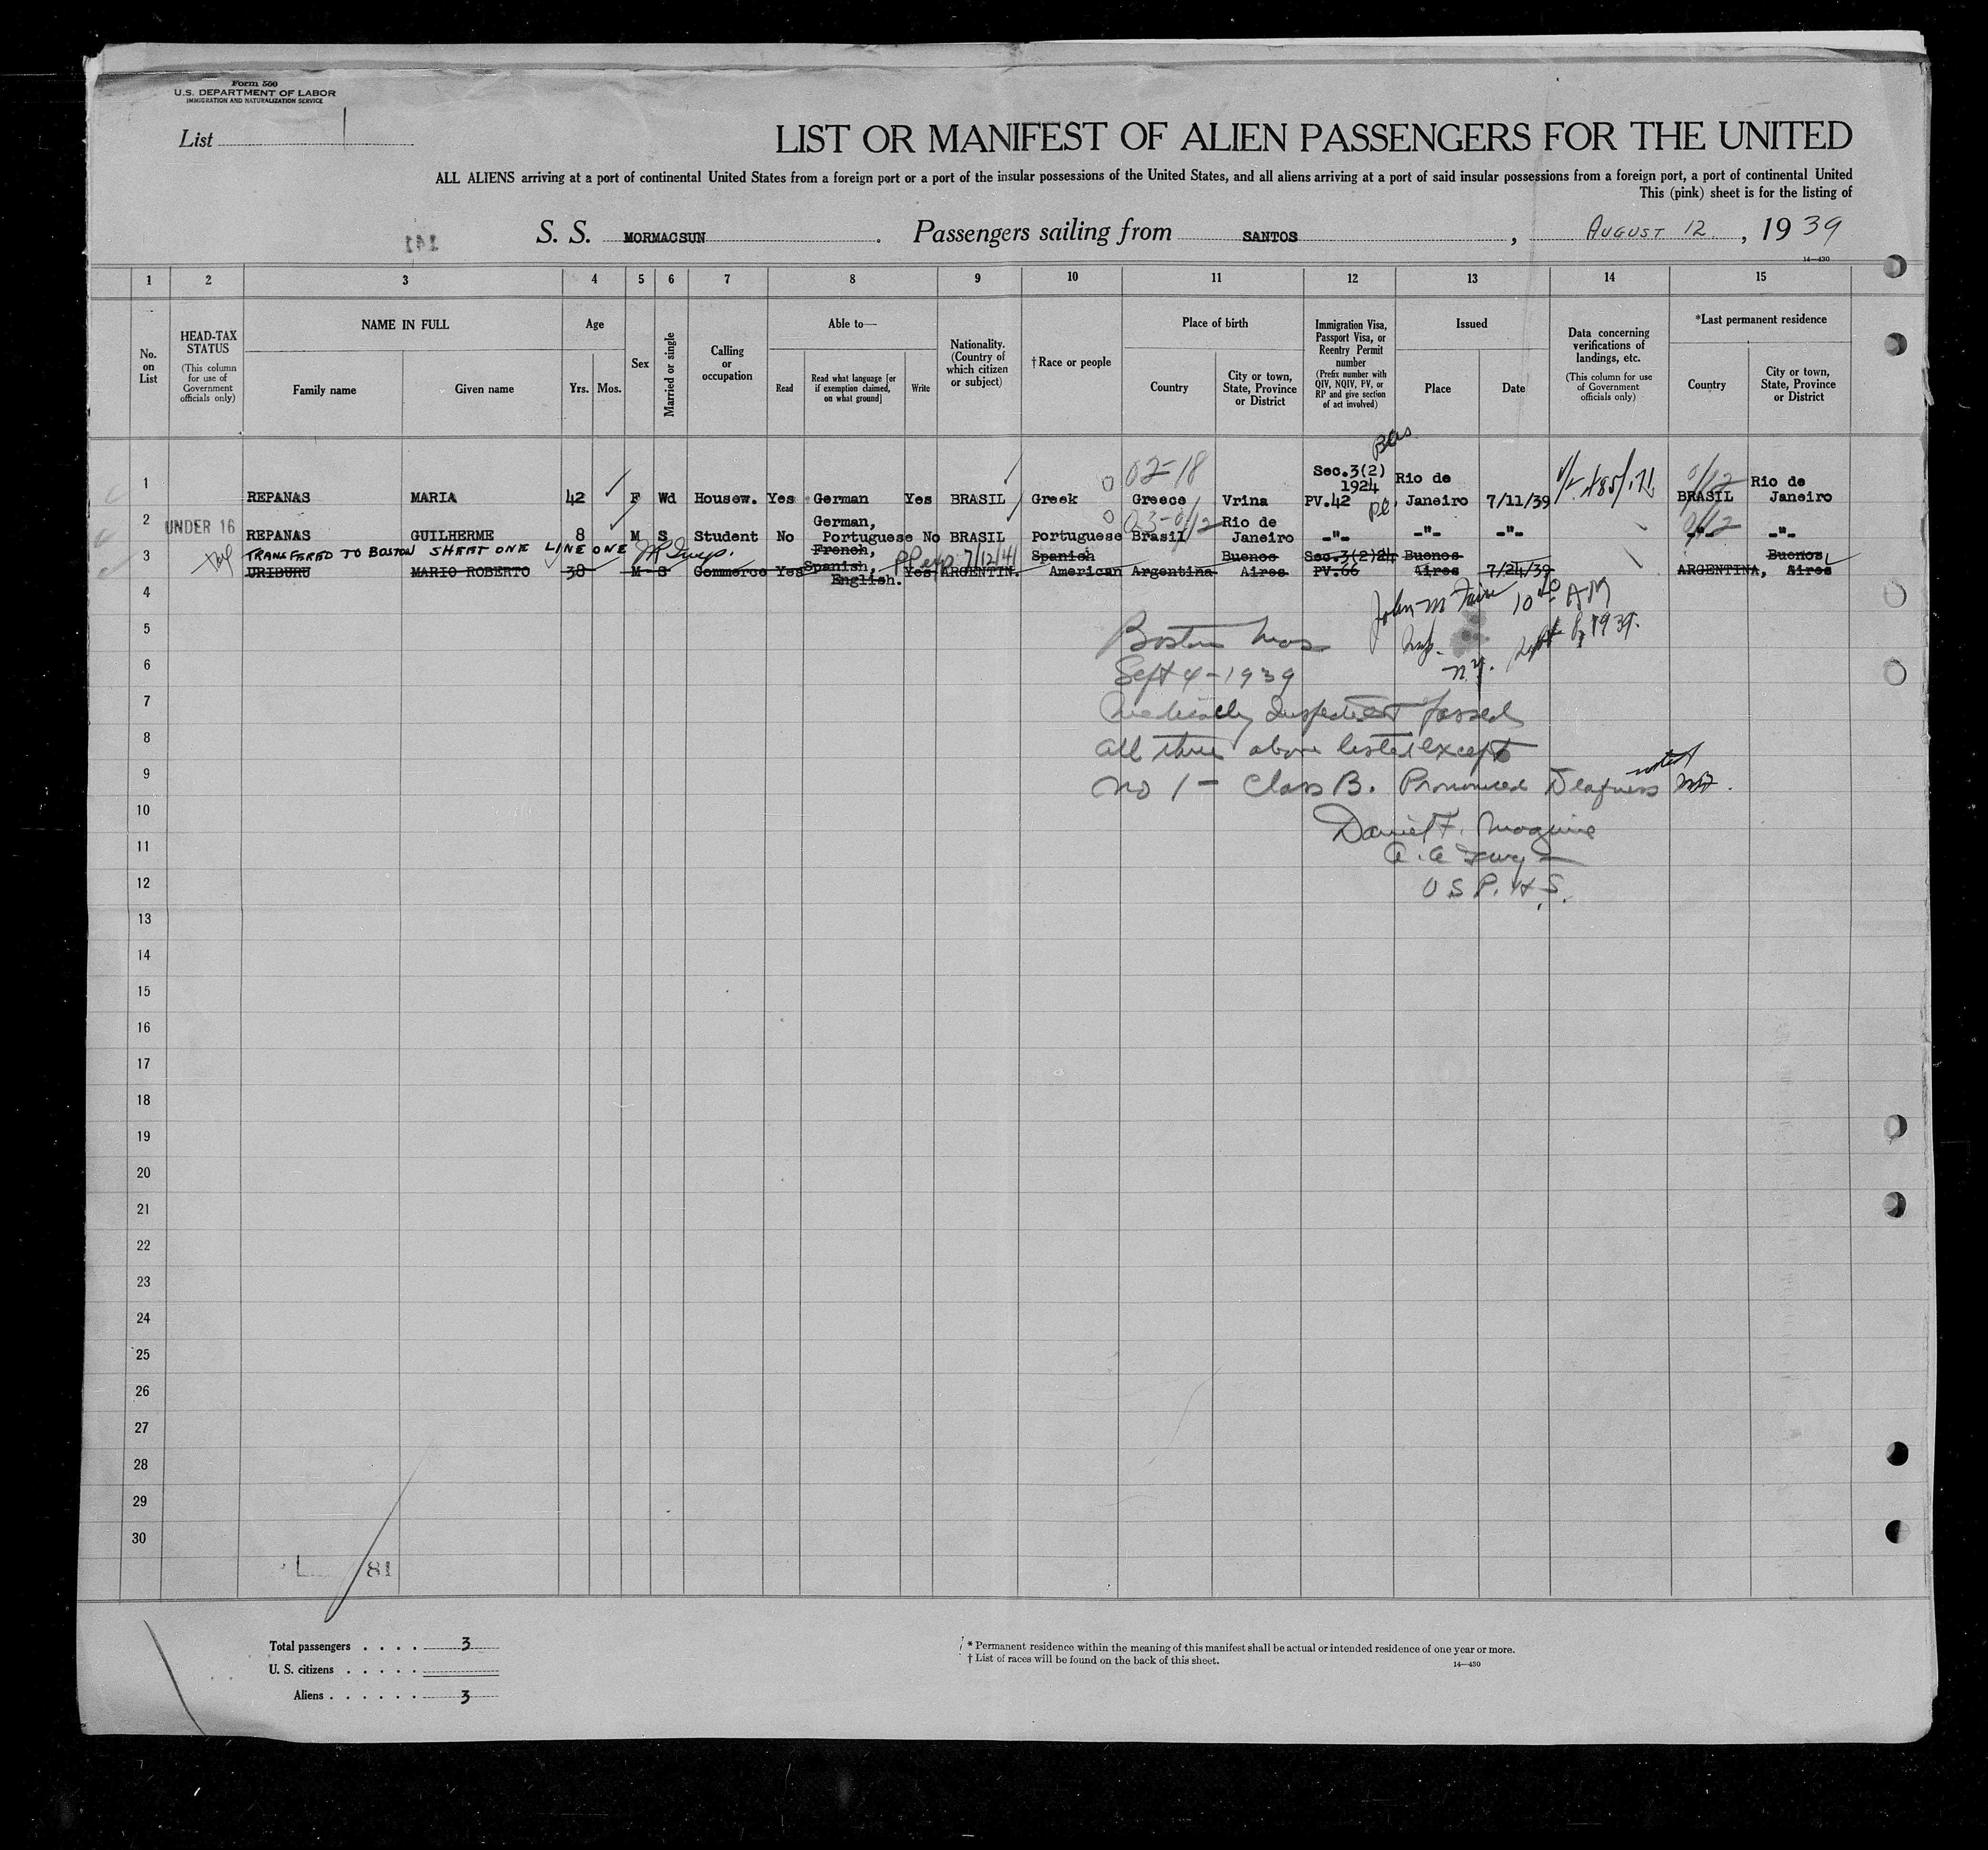 Form 500
U.S. DEPARTMENT OF LABOR
IMMIGRATION AND NATURALIZATION SERVICE
List 1
LIST OR MANIFEST OF ALIEN PASSENGERS FOR THE UNITED
ALL ALIENS arriving at a port of continental United States from a foreign port or a port of the insular possessions of the United States, and all aliens arriving at a port of said insular possessions from a foreign port, a port of continental United
This (pink) sheet is for the listing of
S. S. MORMACSUN . Passengers sailing from SANTOS , AUGUST 12 , 1939
141
14—430
1 2 3 4 5 6 7 8 9 10 11 12 13 14 15
No. on List
HEAD-TAX STATUS (This column for use of Government officials only)
NAME IN FULL
Family name
Given name
Age
Yrs. Mos.
Sex
Married or single
Calling or occupation
Able to—
Read
Read what language [or if exemption claimed, on what ground]
Write
Nationality. (Country of which citizen or subject)
† Race or people
Place of birth
Country
City or town, State, Province or District
Immigration Visa, Passport Visa, or Reentry Permit number (Prefix number with QIV, NQIV, PV, or RP and give section of act involved)
Issued
Place
Date
Data concerning verifications of landings, etc. (This column for use of Government officials only)
*Last permanent residence
Country
City or town, State, Province or District
02-18
1 REPANAS MARIA 42 F Wd Housew. Yes German Yes BRASIL Greek Greece Vrina Sec.3(2) 1924 PV.42 Rio de Janeiro 7/11/39 BRASIL Rio de Janeiro
2 UNDER 16 REPANAS GUILHERME 8 M S Student No German, Portuguese No BRASIL Portuguese Brasil Rio de Janeiro -"- -"- -"- -"- -"-
TRANSFERED TO BOSTON SHEET ONE LINE ONE
3 URIBURU MARIO ROBERTO 38 M S Commerce Yes French, Spanish, English. Yes ARGENTIN. Spanish American Argentina Buenos Aires Sec.3(2)24 PV.66 Buenos Aires 7/24/39 ARGENTINA, Buenos Aires
4
5
6
7
8
9
10
11
12
13
14
15
16
17
18
19
20
21
22
23
24
25
26
27
28
29
30
Boston Mas
Sept 4-1939
Medically Inspected & passed
all three above listed except
no 1 - Class B. Pronounced Deafness noted
Daniel F. Maguire
A. A Surg
U S P. H. S.
81
Total passengers . . . . 3
U. S. citizens . . . . .
Aliens . . . . . . 3
* Permanent residence within the meaning of this manifest shall be actual or intended residence of one year or more.
† List of races will be found on the back of this sheet.
14—430